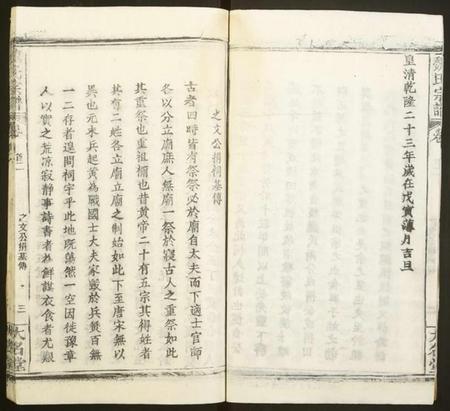 氏宗譜
皇清乾隆二十三年歲在戊寅蒲月吉旦
大名堂
之文公捐祠基傳
古者四時皆有祭祭必於廟自太夫而下適士官師
各以分立廟庶人無廟一祭於寢古人之重祭如此
其重祭也重祖禰也昔黃帝二十有五宗其得姓者
其有二姓各立廟立廟之制始如此下至唐宋無以
異也元末兵起黃為戰國士大夫家毀於兵燹百無
一二存者遑問祠宇乎此地既蕩然一空因徙豫章
人以實之荒涼寂靜事詩書者尠鮮謀衣食者尤艱
之文公捐基傳
三
大名堂